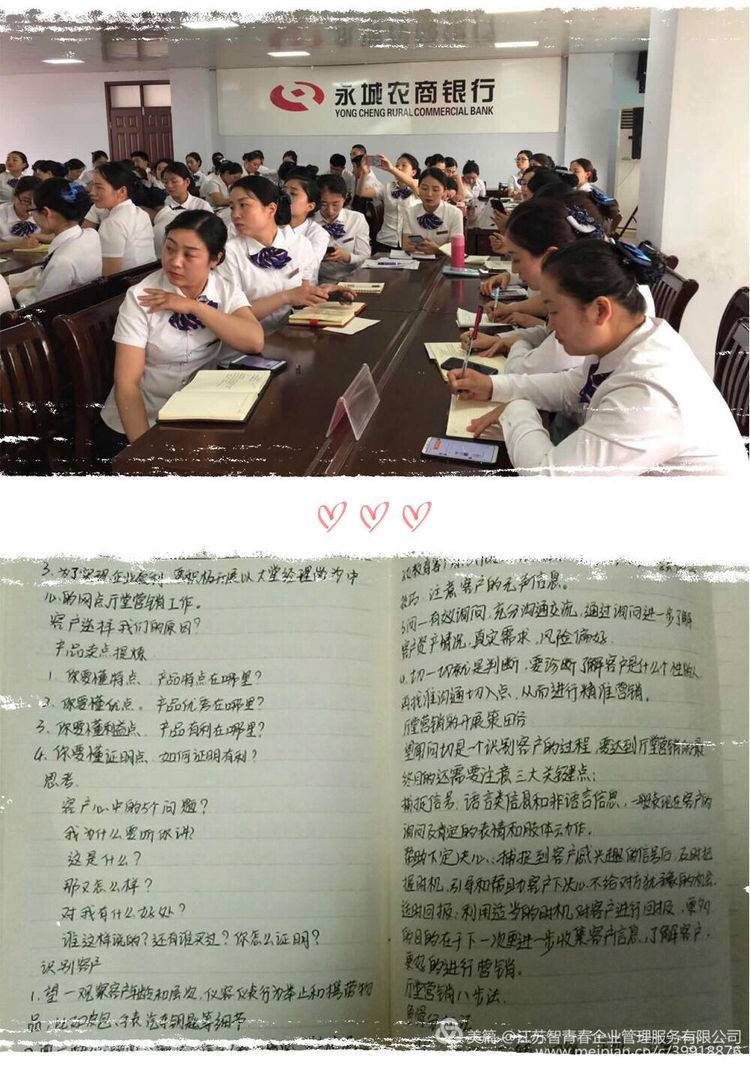 永城农商银行
YONG CHENG RURAL COMMERCIAL BANK
3. 为了实现企业盈利 要积极开展以大堂经理岗为中
心的网点厅堂营销工作。
客户选择我们的原因?
产品卖点提炼
1. 你要懂特点、产品特点在哪里?
2. 你要懂优点、产品优势在哪里?
3. 你要懂利益点、产品有利在哪里?
4. 你要懂证明点、如何证明有利?
思考.
客户心中的5个问题?
我为什么要听你讲?
这是什么?
那又怎么样?
对我有什么好处?
谁这样说的?还有谁买过?你怎么证明?
识别客户
1. 望一观察客户年龄和层次、仪容仪表行为举止和携带物
品,比如衣包、手表 汽车钥匙等细节
注意客户的无声信息。
3.问一有效询问、充分沟通交流,通过询问进一步了解
客户资产情况,真实需求,风险偏好.
4.切一切就是判断,要诊断了解客户是什么个性的人
再找准沟通切入点、从而进行精准营销。
厅堂营销的开展策略
望闻问切是一个识别客户的过程,要达到厅堂营销的最
终目的还需要注意三大关键点:
捕捉信号:语言类信息和非语言信息,一般表现在客户的
询问及肯定的表情和肢体动作。
帮助下定决心:捕捉到客户感兴趣的信号后,及时把
握时机,引导和帮助客户下决心不给对方犹豫的机会
适时回报:利用适当的时机对客户进行回报,
的目的在于下一次更进一步收集客户信息,了解客户,
更好的进行营销。
厅堂营销八步法.
美篇 @江苏智青春企业管理服务有限公司
www.meipian.cn/c/39918876